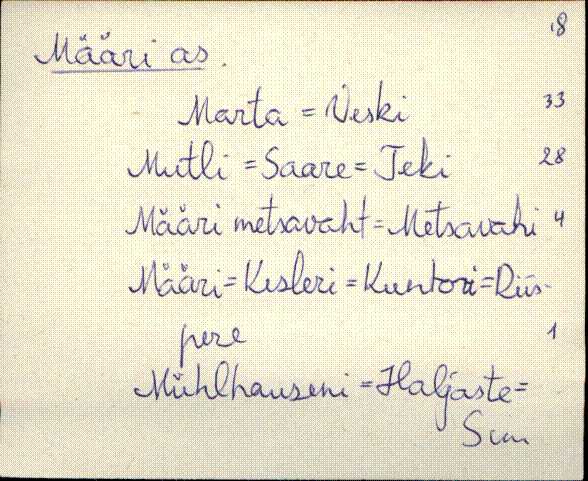 18
Määri as.
Marta = Veski 33
Mutli = Saare = Teki 28
Määri metsavaht = Metsavahi 4
Määri = Kesleri = Kuntori = Riis-
pere 1
Mühlhauseni = Haljaste =